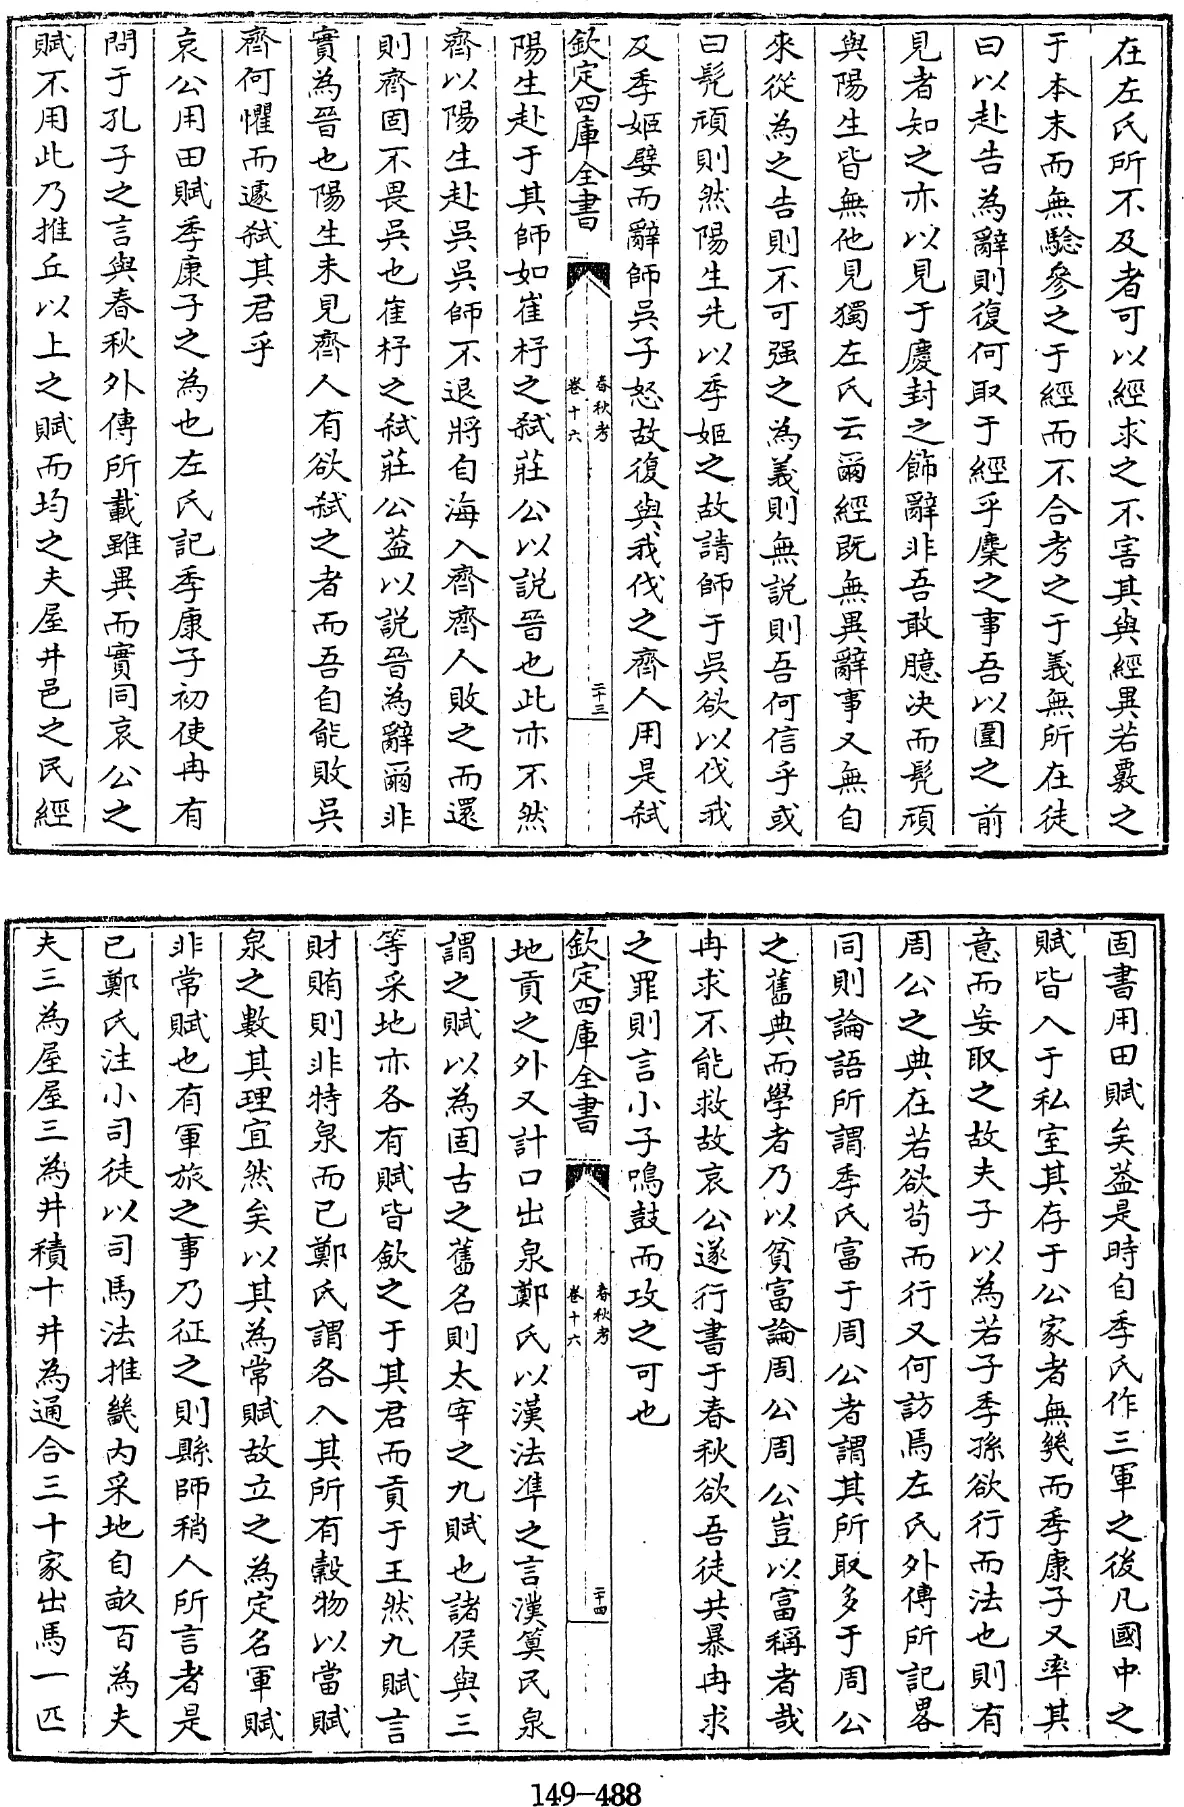 在左氏所不及者可以經求之不害其與經異若覈之
于本末而無驗參之于經而不合考之于義無所在徒
曰以赴告為辭則復何取于經乎麇之事吾以圍之前
見者知之亦以見于慶封之飾辭非吾敢臆决而髠頑
與陽生皆無他見獨左氏云爾經既無異辭事又無自
來從為之告則不可强之為義則無説則吾何信乎或
曰髠頑則然陽生先以季姬之故請師于吳欲以伐我
及季姬嬖而辭師吳子怒故復與我伐之齊人用是弑
欽定四庫全書
春秋考
卷十六
二十三
陽生赴于其師如崔杼之弑莊公以説晉也此亦不然
齊以陽生赴吳吳師不退將自海入齊齊人敗之而還
則齊固不畏吳也崔杼之弑莊公葢以説晉為辭爾非
實為晉也陽生未見齊人有欲弑之者而吾自能敗吳
齊何懼而遽弑其君乎
哀公用田賦季康子之為也左氏記季康子初使冉有
問于孔子之言與春秋外傳所載雖異而實同哀公之
賦不用此乃推丘以上之賦而均之夫屋井邑之民經
固書用田賦矣葢是時自季氏作三軍之後凡國中之
賦皆入于私室其存于公家者無幾而季康子又率其
意而妄取之故夫子以為若子季孫欲行而法也則有
周公之典在若欲苟而行又何訪焉左氏外傳所記畧
同則論語所謂季氏富于周公者謂其所取多于周公
之舊典而學者乃以貧富論周公周公豈以富稱者哉
冉求不能救故哀公遂行書于春秋欲吾徒共暴冉求
之罪則言小子鳴鼓而攻之可也
欽定四庫全書
春秋考
卷十六
二十四
地貢之外又計口出泉鄭氏以漢法準之言漢筭民泉
謂之賦以為固古之舊名則太宰之九賦也諸侯與三
等采地亦各有賦皆斂之于其君而貢于王然九賦言
財賄則非特泉而已鄭氏謂各入其所有穀物以當賦
泉之數其理宜然矣以其為常賦故立之為定名軍賦
非常賦也有軍旅之事乃征之則縣師稍人所言者是
已鄭氏注小司徒以司馬法推畿内采地自畝百為夫
夫三為屋屋三為井積十井為通合三十家出馬一匹
149-488